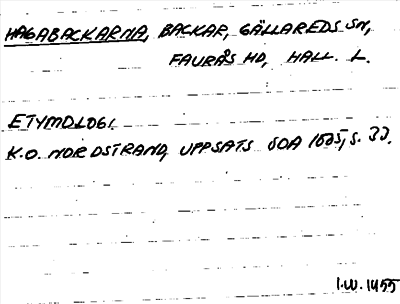 HAGABACKARNA, BACKAR, GÄLLAREDS SN,
FAURÅS HD, HALL. L.
ETYMOLOGI.
K.O. NORDSTRAND, UPPSATS GOA S. 33.
I.W. 1955